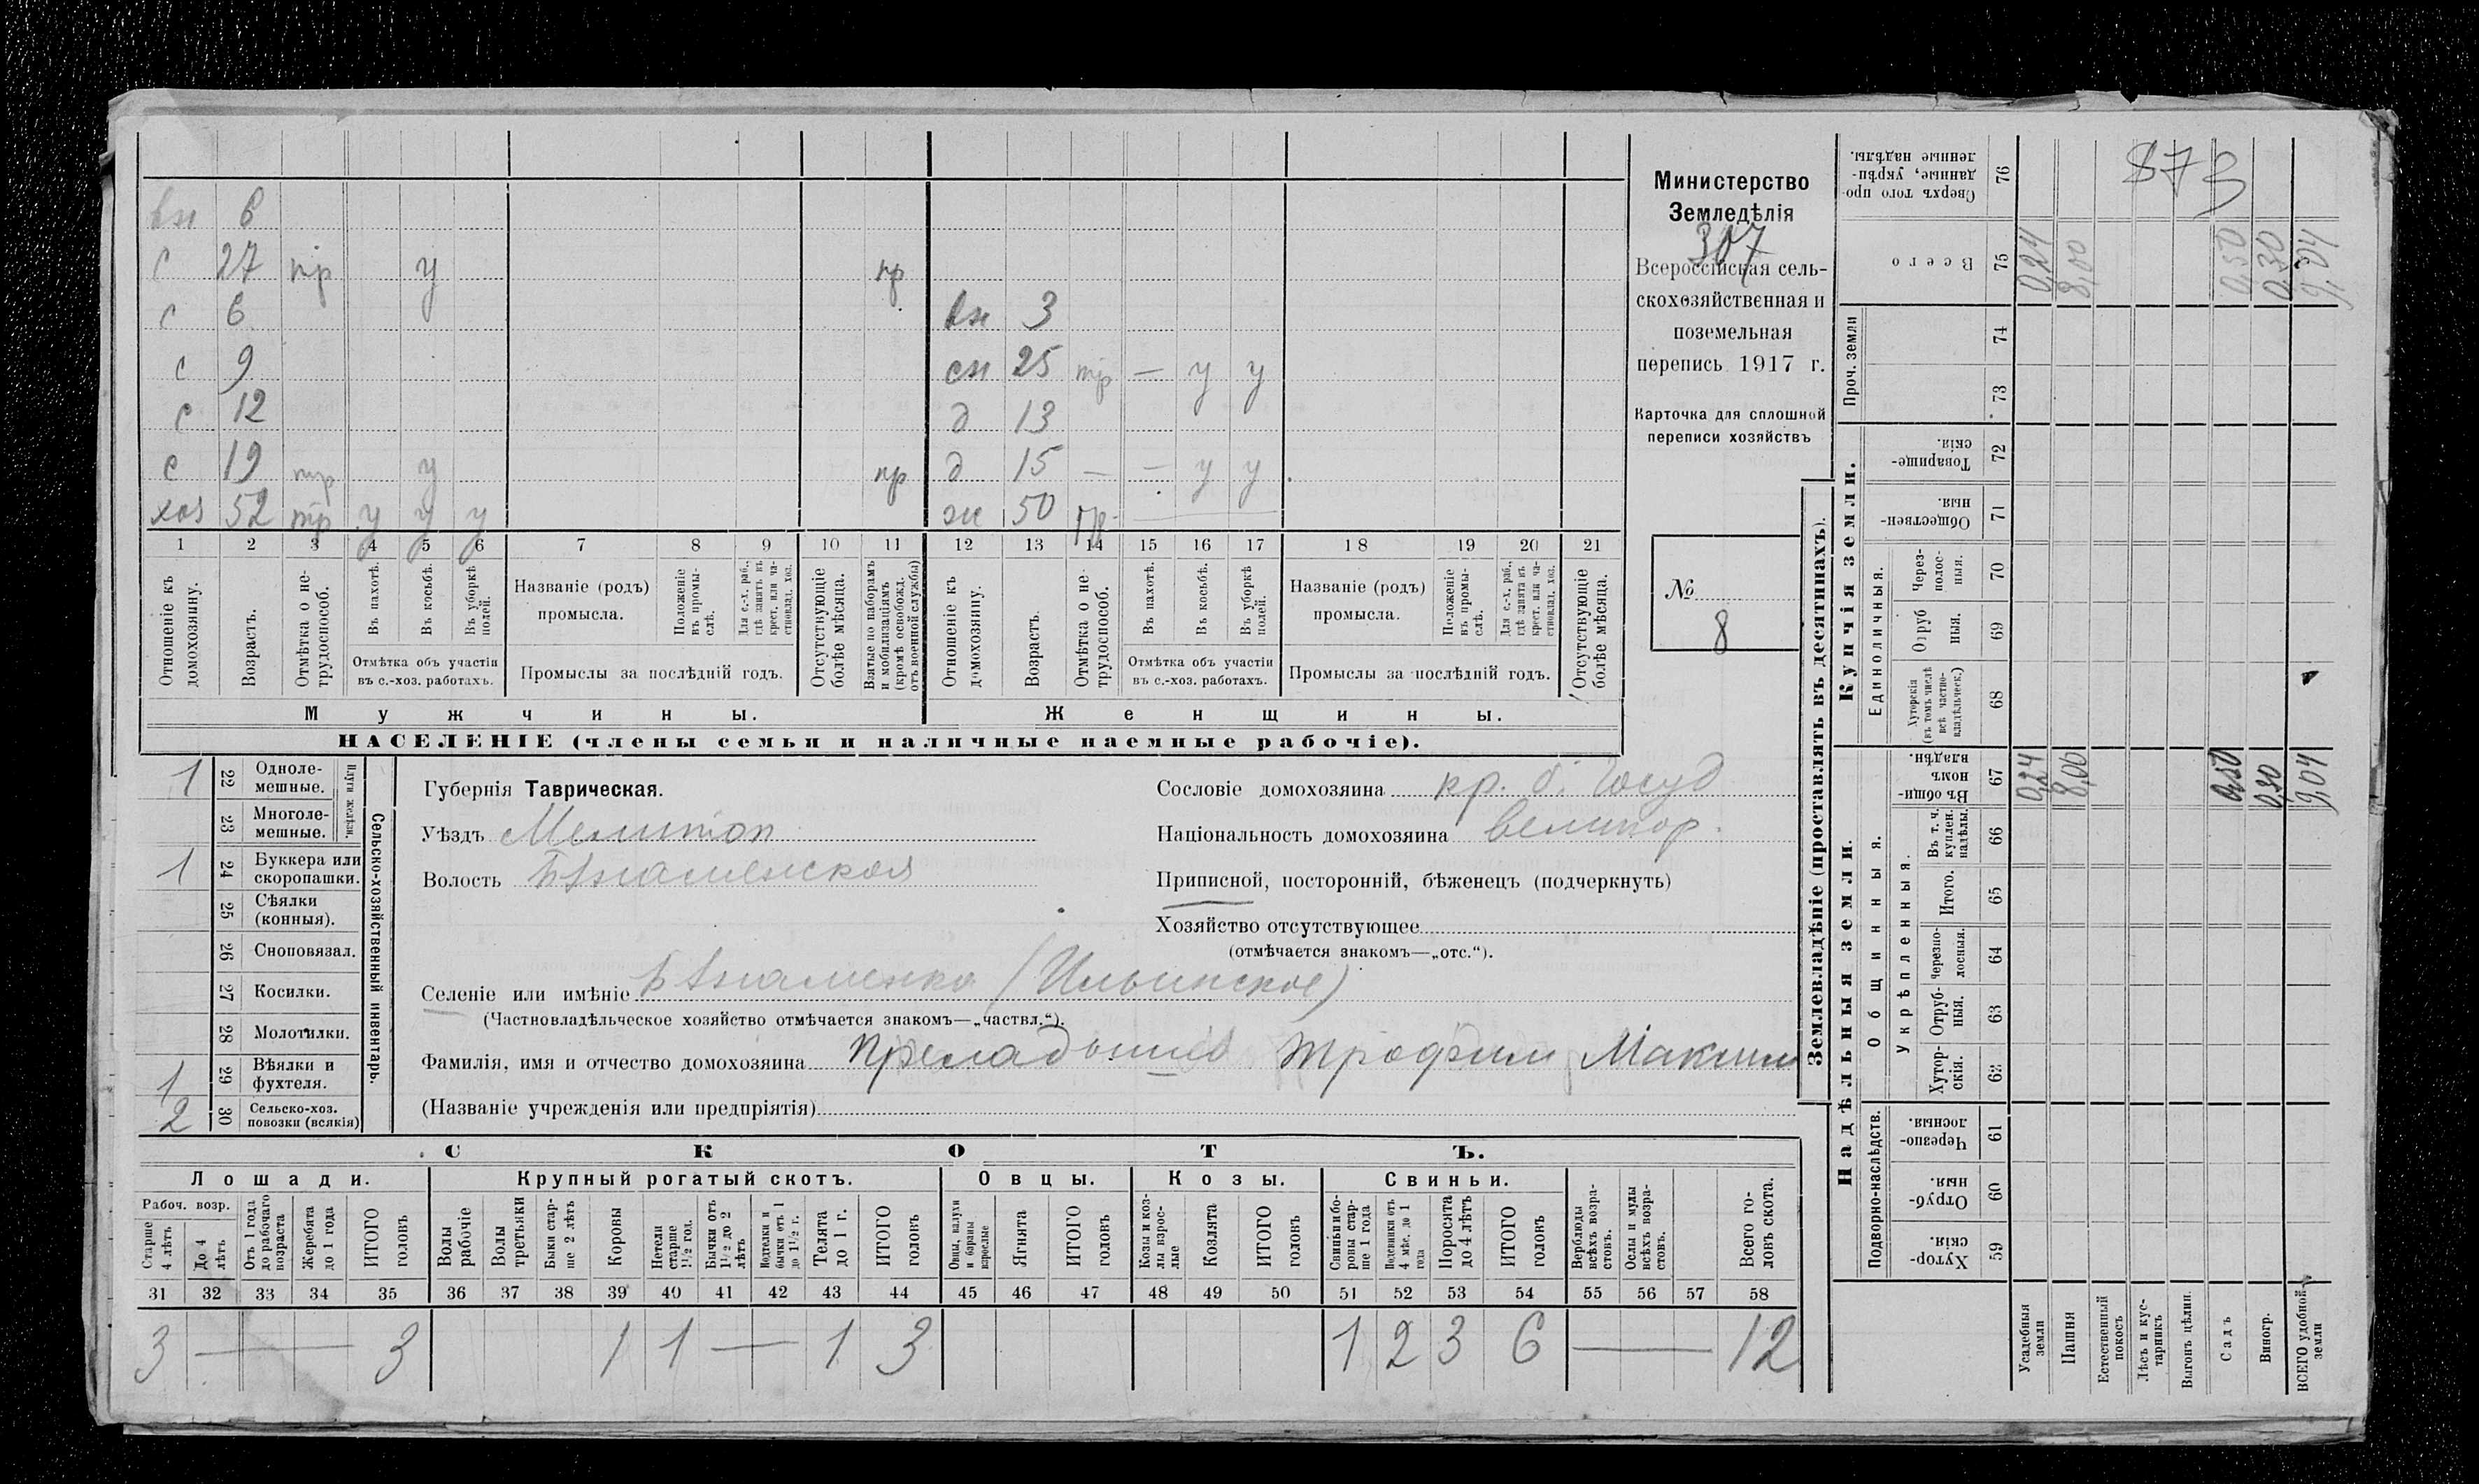 873
Министерство
Земледѣлія
307
Всероссійская сель-
скохозяйственная и
поземельная
перепись 1917 г.
Карточка для сплошной
переписи хозяйствъ
№
8
вн 6
с 27 тр у пр
с 6 вн 3
с 9 сн 25 тр — у у
с 12 д 13
с 19 тр у пр д 15 — — у у
хоз 52 тр у у у ж 50
1 2 3 4 5 6 7 8 9 10 11 12 13 14 15 16 17 18 19 20 21
Отношеніе къ домохозяину.
Возрастъ.
Отмѣтка о не-трудоспособ.
Въ пахотѣ.
Въ косьбѣ.
Въ уборкѣ полей.
Отмѣтка объ участіи
въ с.-хоз. работахъ.
Названіе (родъ)
промысла.
Положеніе въ промы-слѣ.
Для с.-х. раб., гдѣ занятъ въ крест. или ча-стновлад. хоз.
Промыслы за послѣдній годъ.
Отсутствующіе болѣе мѣсяца.
Взятые по наборамъ и мобилизаціямъ (кромѣ освобожд. отъ военной службы)
Отношеніе къ домохозяину.
Возрастъ.
Отмѣтка о не-трудоспособ.
Въ пахотѣ.
Въ косьбѣ.
Въ уборкѣ полей.
Отмѣтка объ участіи
въ с.-хоз. работахъ.
Названіе (родъ)
промысла.
Положеніе въ промы-слѣ.
Для с.-х. раб., гдѣ занята въ крест. или ча-стновлад. хоз.
Промыслы за послѣдній годъ.
Отсутствующіе болѣе мѣсяца.
Мужчины. Женщины.
НАСЕЛЕНІЕ (члены семьи и наличные наемные рабочіе).
Сельско-хозяйственный инвентарь.
Плуги желѣзн.
1 22 Одноле-мешные.
23 Многоле-мешные.
1 24 Буккера или скоропашки.
25 Сѣялки (конныя).
26 Сноповязал.
27 Косилки.
28 Молотилки.
1 29 Вѣялки и фухтеля.
2 30 Сельско-хоз. повозки (всякія)
Губернія Таврическая.
Уѣздъ Мелитоп
Волость Б Знаменская
Сословіе домохозяина кр. б. госуд
Національность домохозяина великор.
Приписной, посторонній, бѣженецъ (подчеркнуть)
Хозяйство отсутствующее
(отмѣчается знакомъ—„отс.“).
Селеніе или имѣніе Б Знаменка (Ильинское)
(Частновладѣльческое хозяйство отмѣчается знакомъ—„частвл.“).
Фамилія, имя и отчество домохозяина Трофим Максим
(Названіе учрежденія или предпріятія)
СКОТЪ.
Лошади. Крупный рогатый скотъ. Овцы. Козы. Свиньи.
Рабоч. возр.
Старше 4 лѣтъ
До 4 лѣтъ
Отъ 1 года до рабочаго возраста
Жеребята до 1 года
ИТОГО головъ
Волы рабочіе
Волы третьяки
Быки стар-ше 2 лѣтъ
Коровы
Нетели старше 1½ год.
Бычки отъ 1½ до 2 лѣтъ
Подтелки и бычки отъ 1 до 1½ г.
Телята до 1 г.
ИТОГО головъ
Овцы, валухи и бараны взрослые
Ягнята
ИТОГО головъ
Козы и коз-лы взрос-лые
Козлята
ИТОГО головъ
Свиньи и бо-ровы стар-ше 1 года
Подсвинки отъ 4 мѣс. до 1 года
Поросята до 4 лѣтъ
ИТОГО головъ
Верблюды всѣхъ возра-стовъ.
Ослы и мулы всѣхъ возра-стовъ.
Всего го-ловъ скота.
31 32 33 34 35 36 37 38 39 40 41 42 43 44 45 46 47 48 49 50 51 52 53 54 55 56 57 58
3 — 3 1 1 — 1 3 1 2 3 6 — 12
Землевладѣніе (проставлять въ десятинахъ).
Надѣльныя земли. Купчія земли. Проч. земли
Подворно-наслѣдств. Общинныя. Укрѣпленныя. Единоличныя.
Сверхъ того про-данные, укрѣп-ленные надѣлы. 76
Всего 75 0,24 8,00 0,50 0,30 9,04
74
73
Товарище-скія. 72
Обществен-ныя. 71
Через-полос-ныя. 70
Отруб ныя. 69
Хуторскія (въ томъ числѣ всѣ частно-владѣльческ.) 68
Въ общин-номъ владѣн. 67 0,24 8,00 0,50 0,30 9,04
Въ т. ч. куплен. надѣлы. 66
Итого. 65
Черезпо-лосныя. 64
Отруб-ныя. 63
Хутор-скія. 62
Черезпо-лосныя. 61
Отруб-ныя. 60
Хутор-скія. 59
Усадебныя земли
Пашня
Естественный покосъ
Лѣсъ и кус-тарникъ
Выгонъ цѣлин.
Садъ
Виногр.
ВСЕГО удобной земли